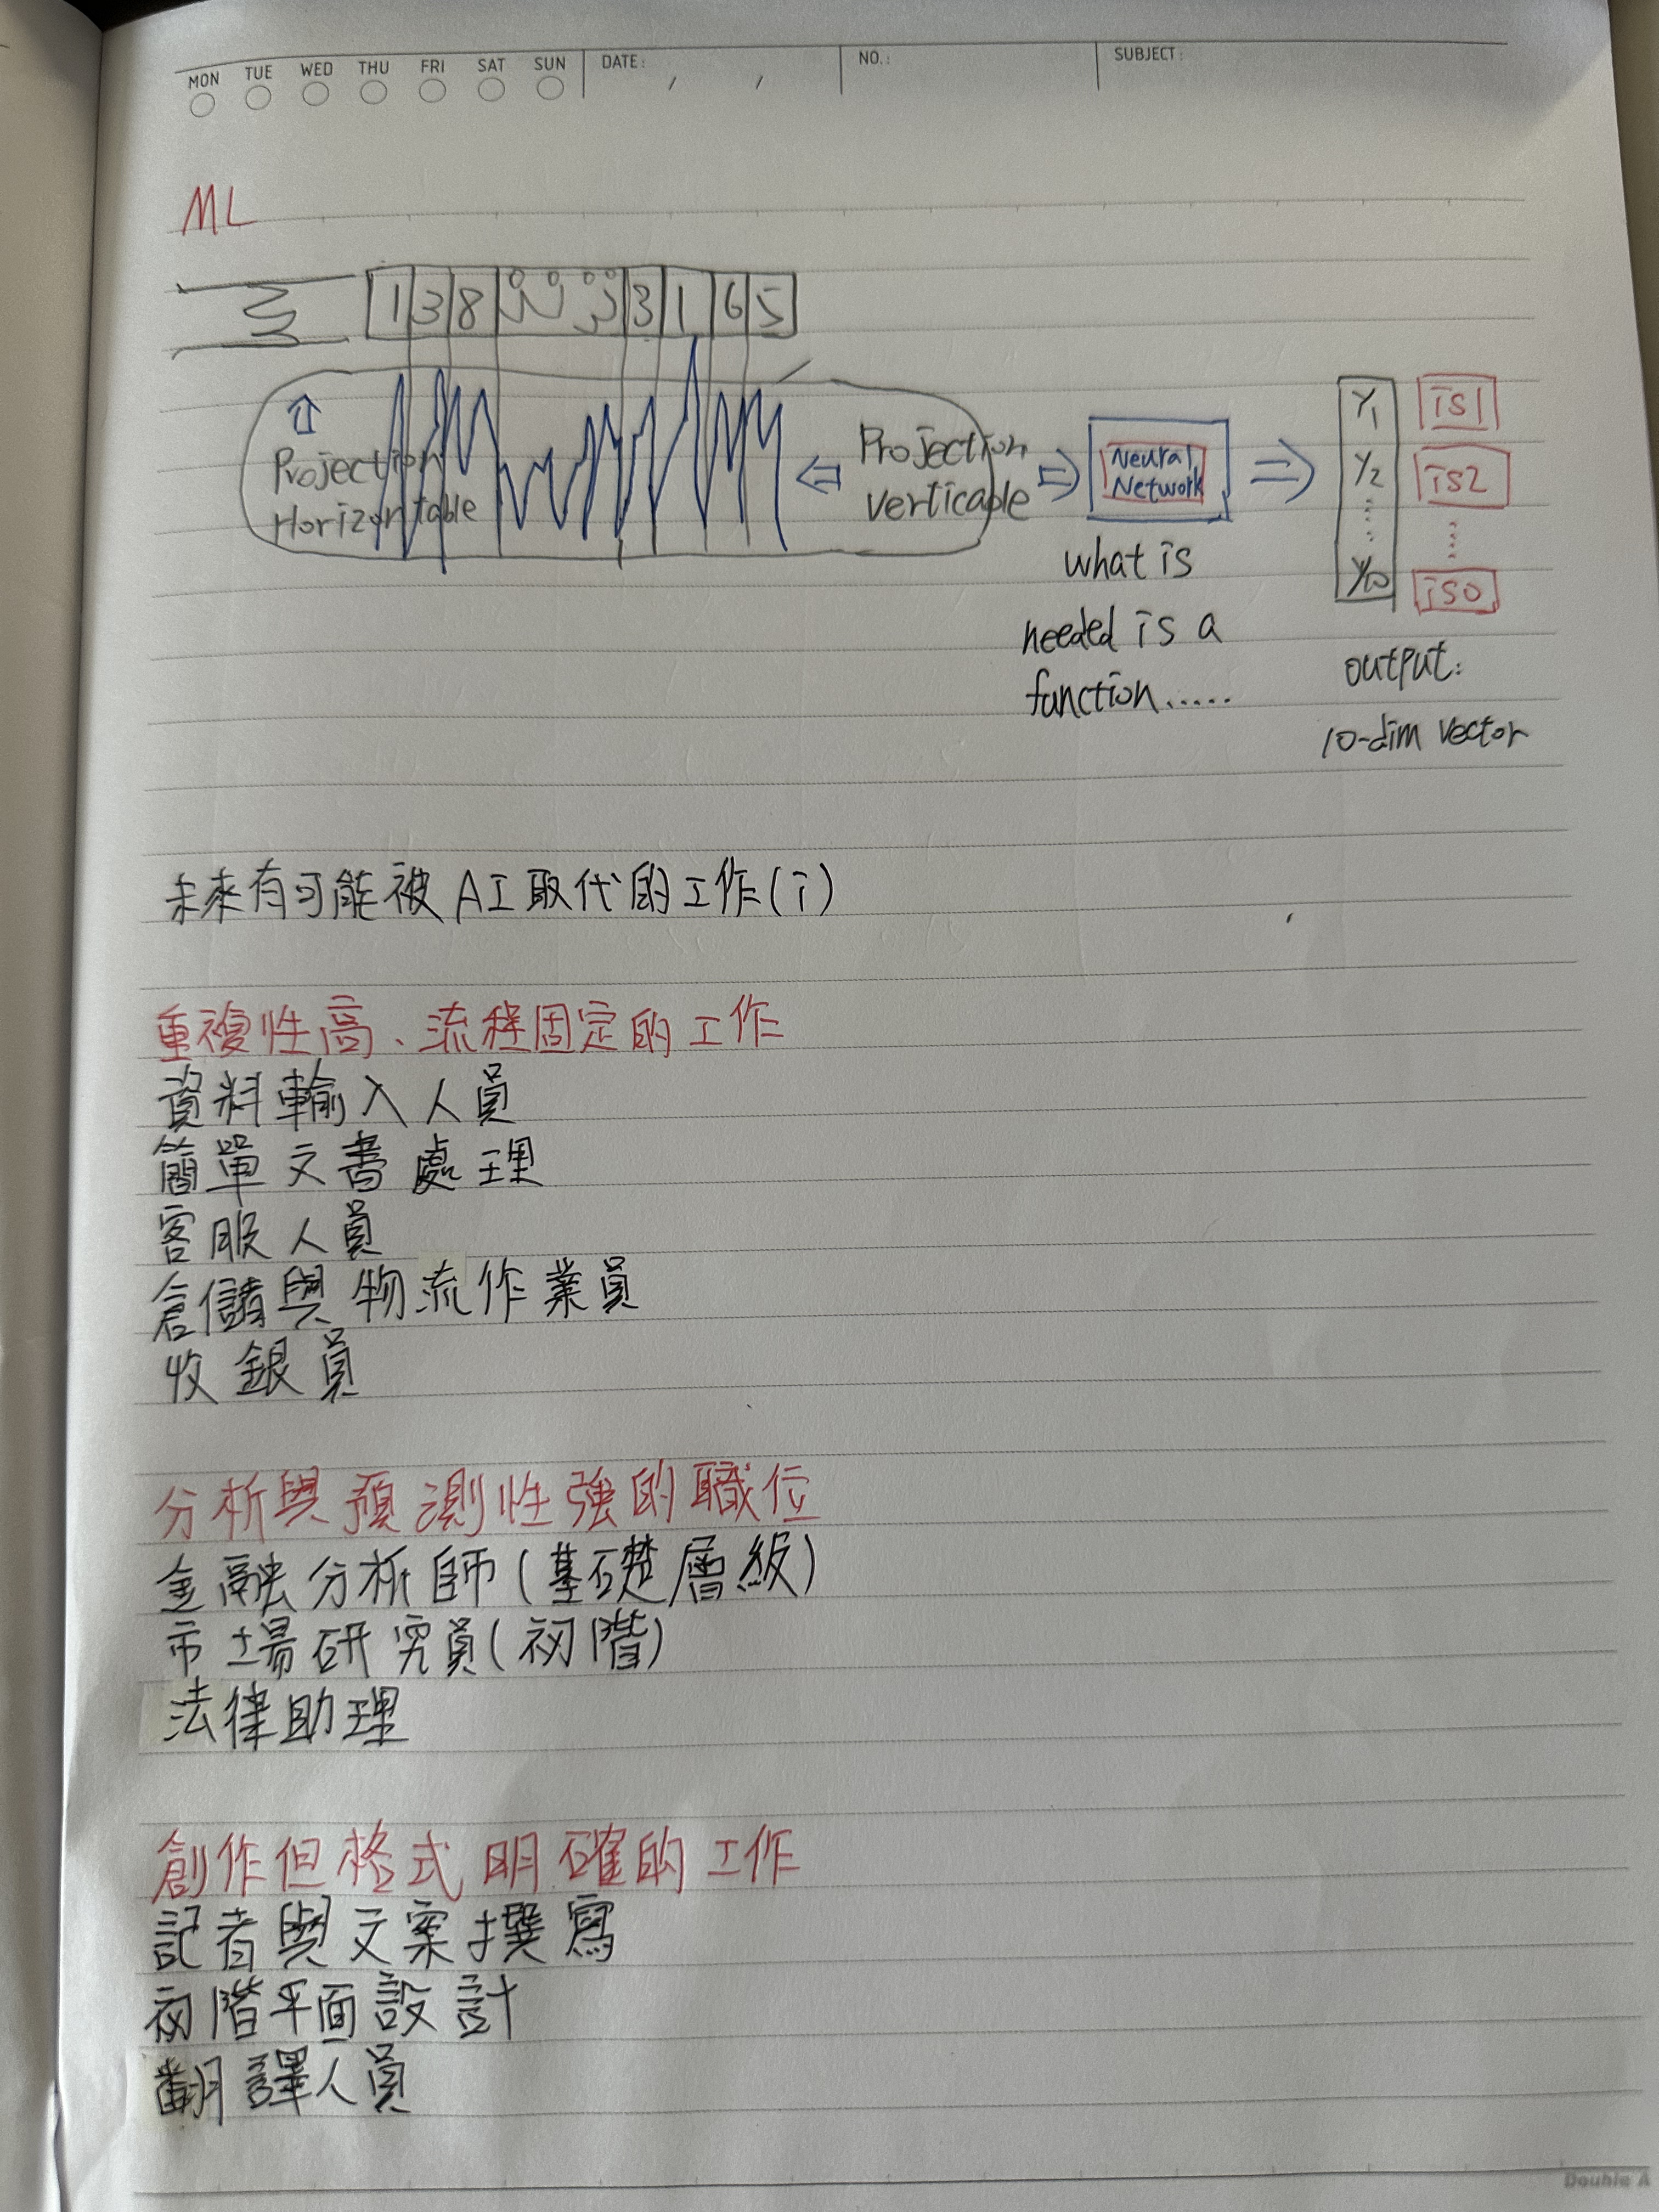 MON TUE WED THU FRI SAT SUN DATE: / / NO.: SUBJECT:
ML
1 3 8 3 1 6 5
Projection
Horizontable
Projection
verticable
Neural
Network
what is
needed is a
function......
Y1 is1
Y2 is2
Y10 is0
output:
10-dim vector
未來有可能被AI取代的工作(i)
重複性高、流程固定的工作
資料輸入人員
簡單文書處理
客服人員
倉儲與物流作業員
收銀員
分析與預測性強的職位
金融分析師(基礎層級)
市場研究員(初階)
法律助理
創作但格式明確的工作
記者與文案撰寫
初階平面設計
翻譯人員
Double A